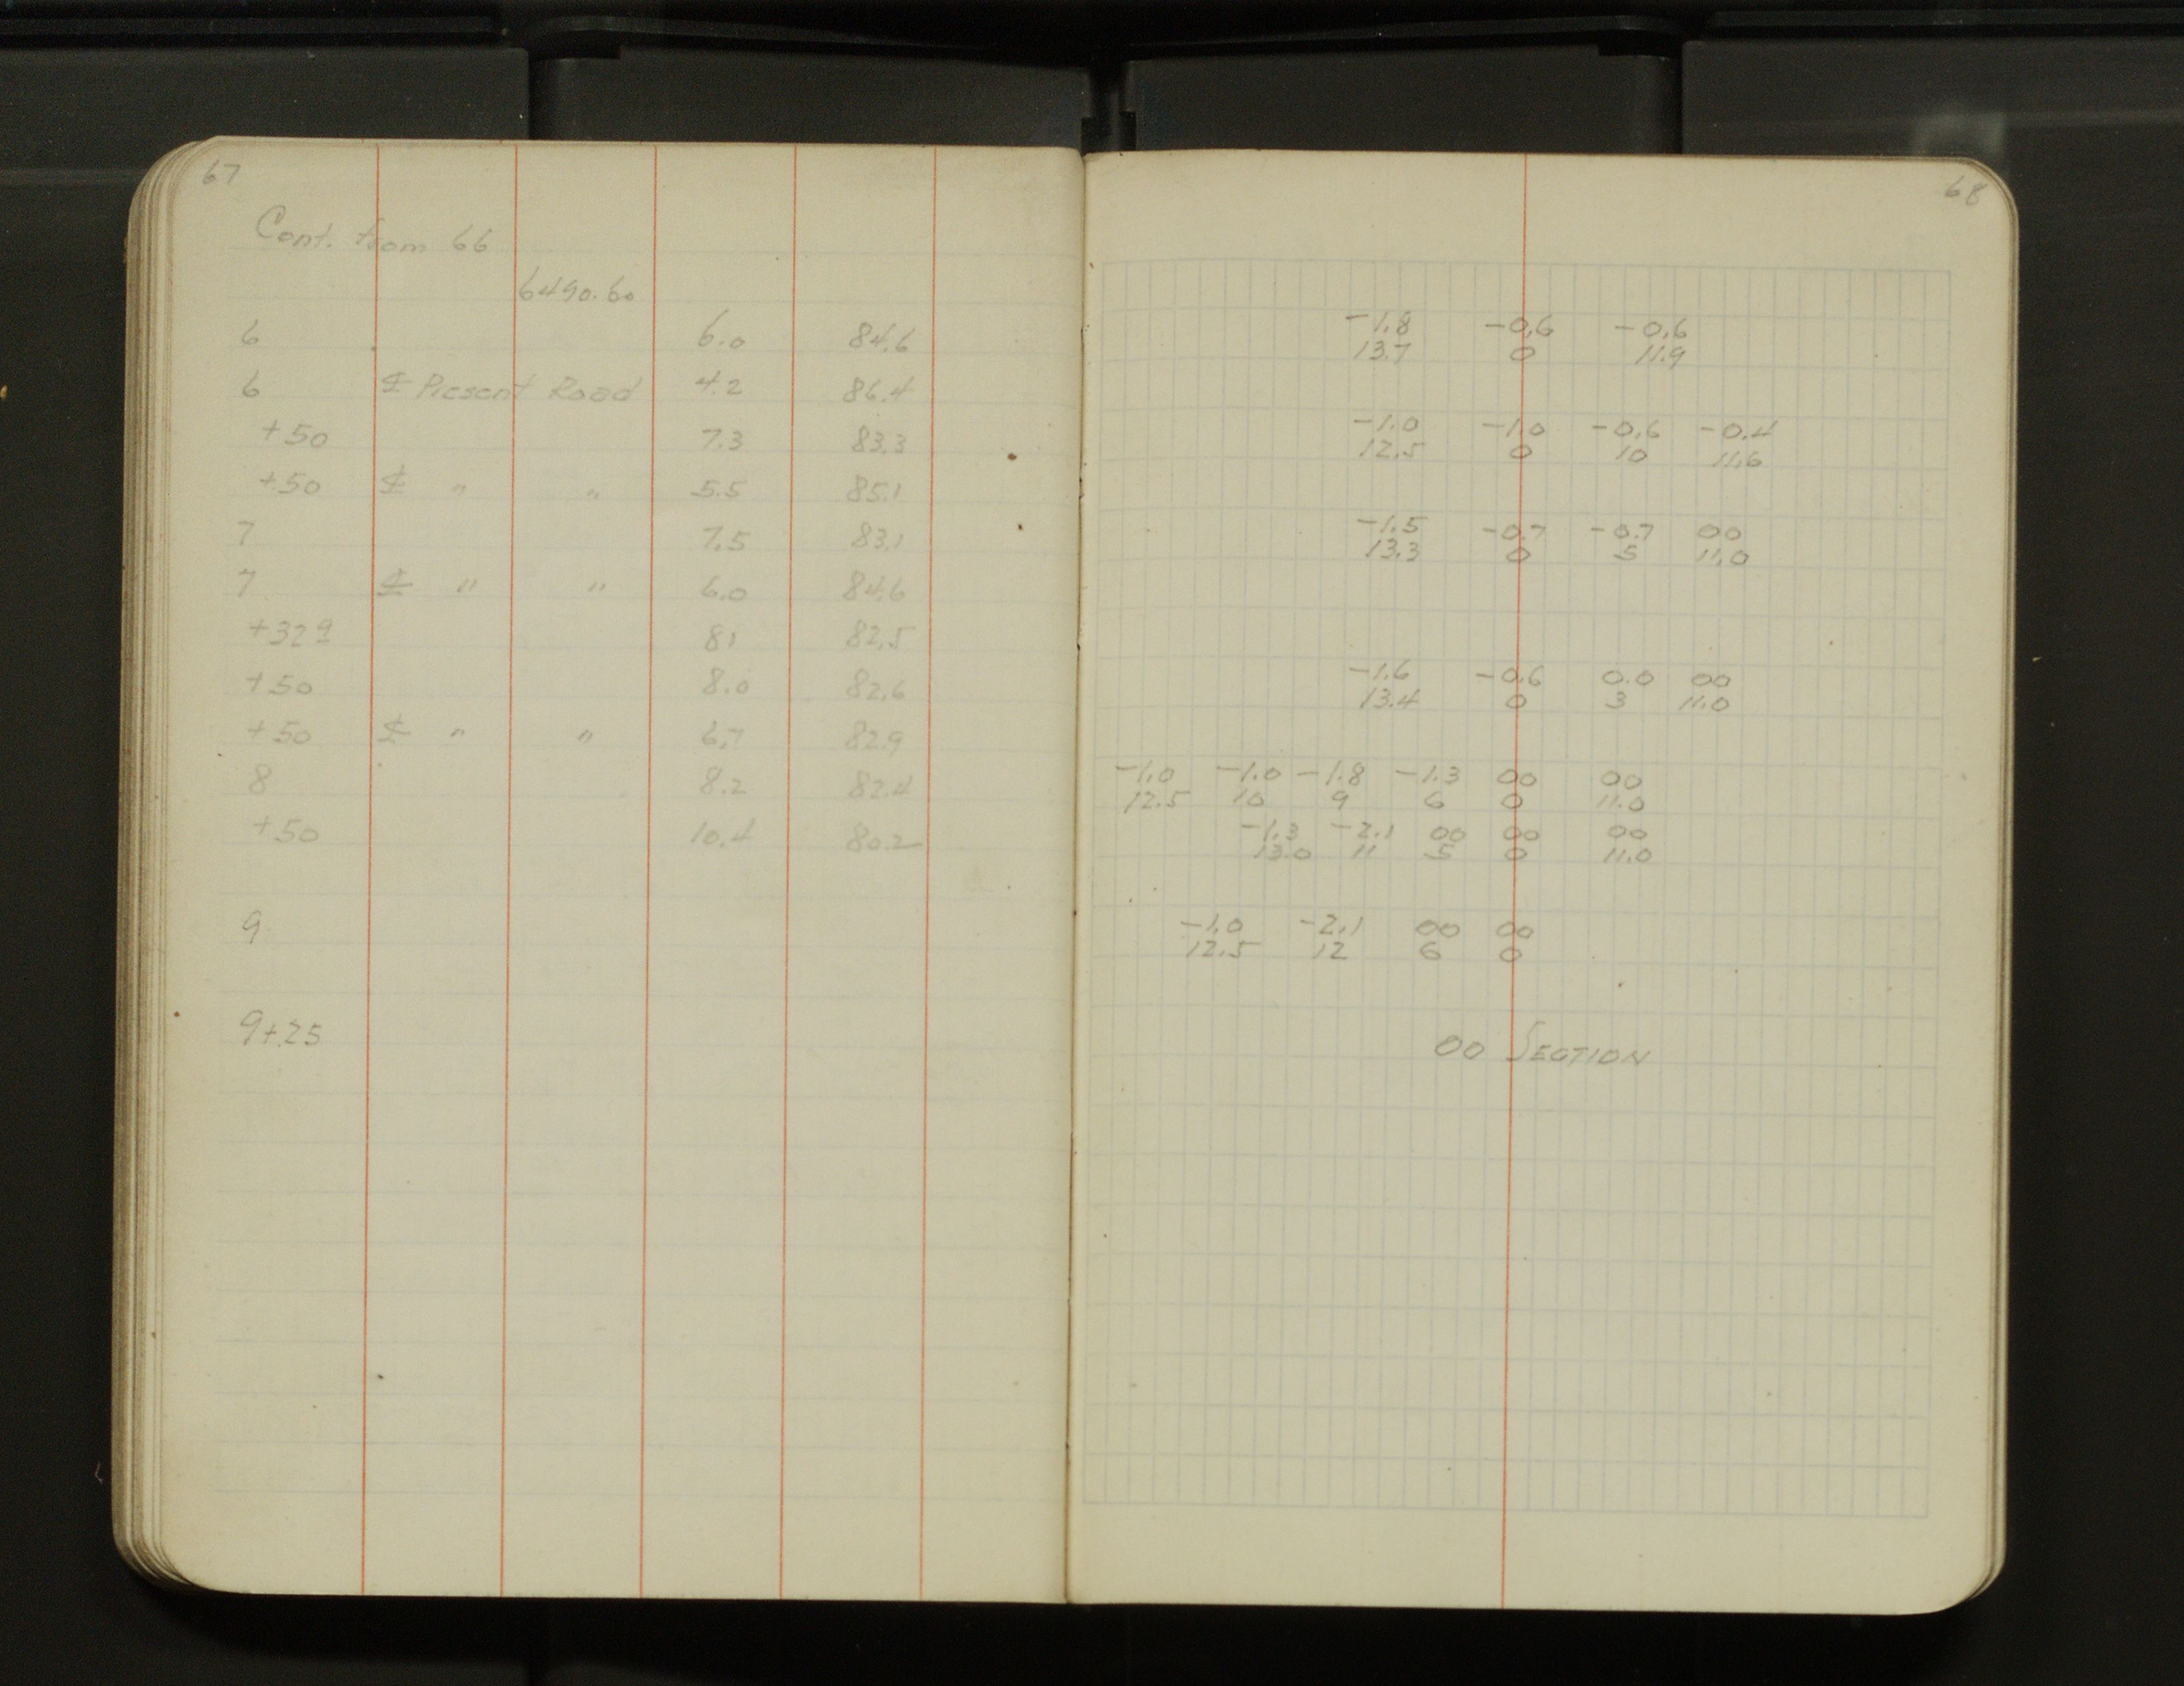 67
Cont. from 66
6490.60
6 6.0 84.6
6 ℄ Present Road 4.2 86.4
+50 7.3 83.3
+50 ℄ " " 5.5 85.1
7 7.5 83.1
7 ℄ " " 6.0 84.6
+329 81 82.5
+50 8.0 82.6
+50 ℄ " " 6.7 82.9
8 8.2 82.4
+50 10.4 80.2
9
9+25
68
-1.8 -0.6 -0.6
13.7 0 11.9
-1.0 -1.0 -0.6 -0.4
12.5 0 10 11.6
-1.5 -0.7 -0.7 00
13.3 0 5 11.0
-1.6 -0.6 0.0 00
13.4 0 3 11.0
-1.0 -1.0 -1.8 -1.3 00 00
12.5 10 9 6 0 11.0
-1.3 -2.1 00 00 00
13.0 11 5 0 11.0
-1.0 -2.1 00 00
12.5 12 6 0
00 SECTION